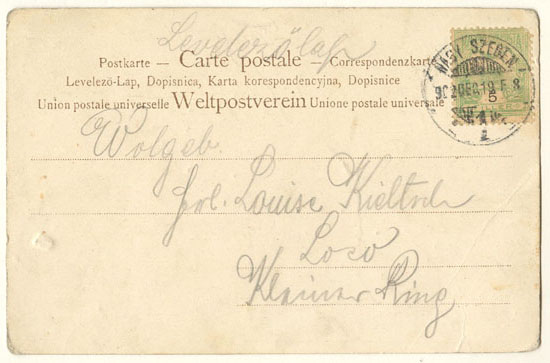 Levelező lap
Postkarte — Carte postale — Correspondenzkarte
Levelező-Lap, Dopisnica, Karta korespondencyjna, Dopisnice
Union postale universelle Weltpostverein Unione postale universale
NAGY SZEBEN
5
Wolgeb.
Frl. Louise
Loco
Kleiner Ring